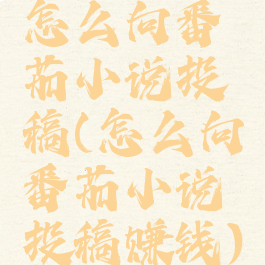 怎么向番
茄小说投
稿(怎么向
番茄小说
投稿赚钱)